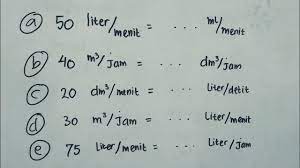 a 50 liter/menit = ... ml/menit
b 40 m³/jam = ... dm³/jam
c 20 dm³/menit = ... liter/detit
d 30 m³/jam = ... liter/menit
e 75 liter/menit = ... liter/jam